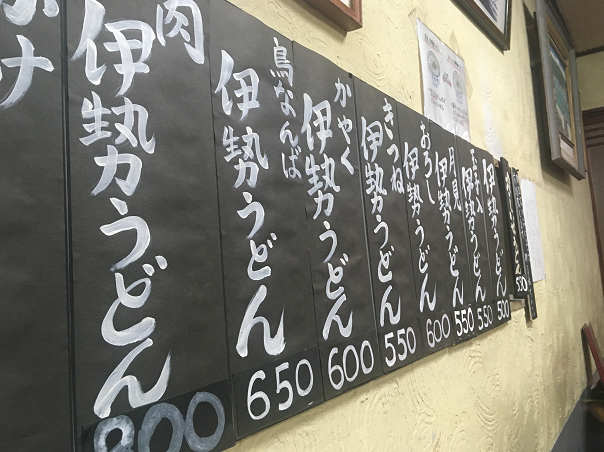 肉
伊勢うどん
800
鳥なんば
伊勢うどん
650
かやく
伊勢うどん
600
きつね
伊勢うどん
550
おろし
伊勢うどん
600
月見
伊勢うどん
550
伊勢うどん
550
伊勢うどん
500
550